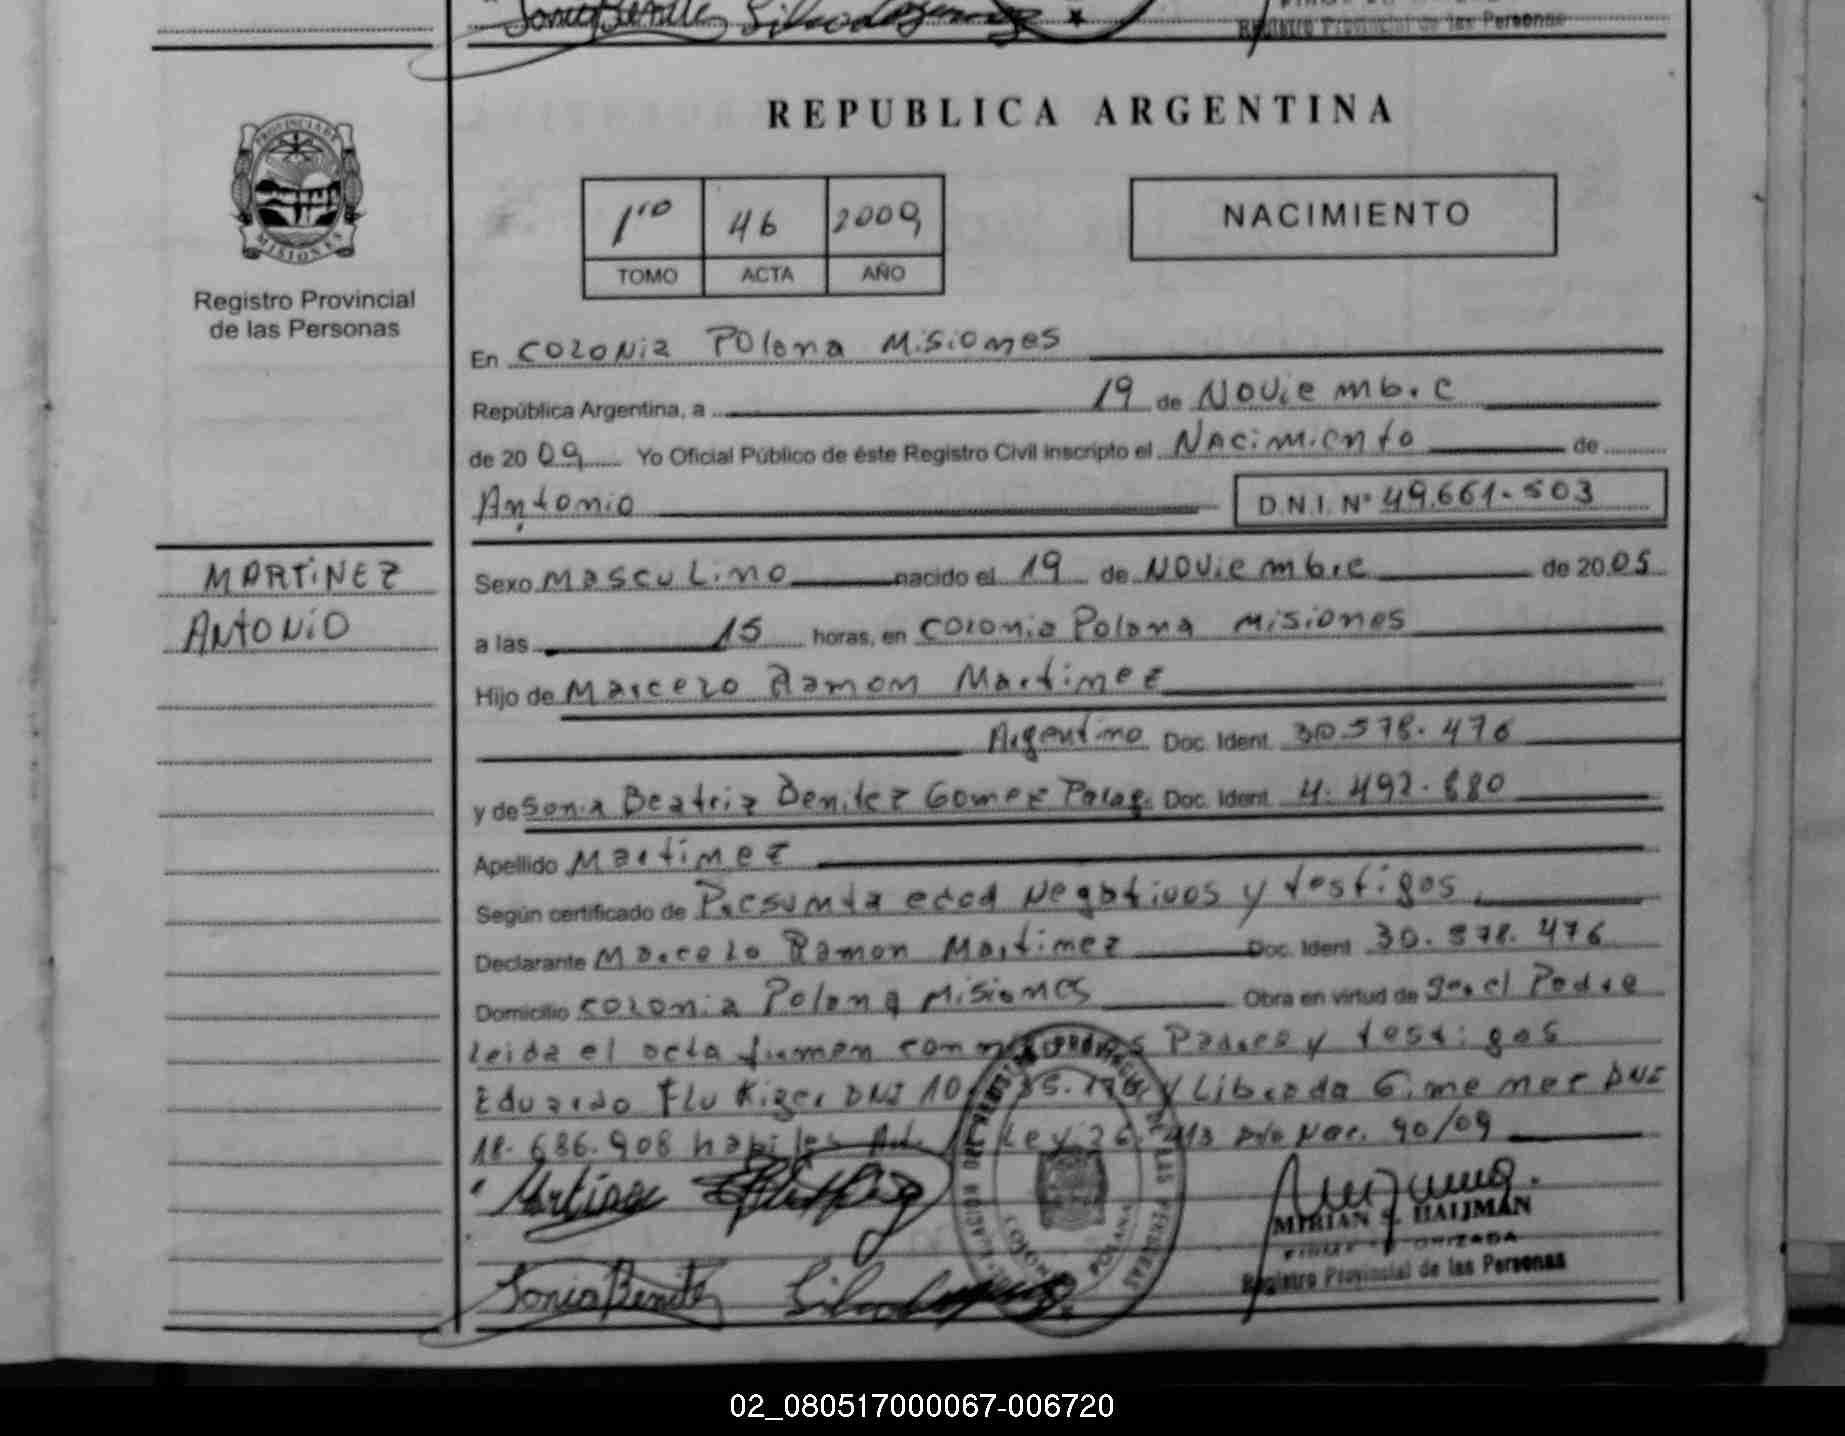 Sonia Benitez
Registro Provincial de las Personas
PROVINCIA DE
MISIONES
Registro Provincial
de las Personas
REPUBLICA ARGENTINA
1ro 46 2009
TOMO ACTA AÑO
NACIMIENTO
En Colonia Polana Misiones
República Argentina, a 19 de Noviembre
de 2009 Yo Oficial Público de éste Registro Civil inscripto el Nacimiento de
Antonio D.N.I. Nº 49.661.503
MARTINEZ
ANTONIO
Sexo Masculino nacido el 19 de Noviembre de 2005
a las 15 horas, en Colonia Polana Misiones
Hijo de Marcelo Ramon Martinez
Argentino Doc. Ident. 30.578.476
y de Sonia Beatriz Benitez Gomez Parag. Doc. Ident. 4.492.880
Apellido Martinez
Según certificado de Presunta edad Negativos y testigos
Declarante Marcelo Ramon Martinez Doc. Ident. 30.578.476
Domicilio Colonia Polana Misiones Obra en virtud de ser el Padre
Leida el acta firman conmigo Padres y testigos
Eduardo Flukiger DNI 10. 35.176 y Librada Gimenez DNI
18.686.908 habiles Ley 26.413 Nac. 90/09
Martinez
MIRIAN HAIJMAN
FIRMA AUTORIZADA
Sonia Benitez
Registro Provincial de las Personas
COLONIA POLANA
02_080517000067-006720